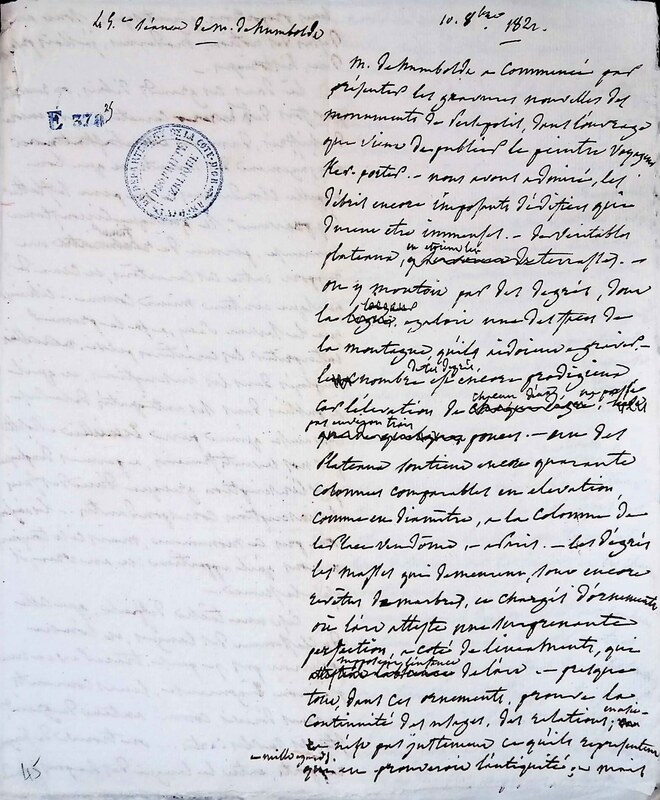 La 9.e séance de M. de humboldt
10. 8bre 1821.
E 378 25
ARCHIVES DÉPARTEMENTALES DE LA CÔTE-D'OR
M. de humboldt a commencé par
présenter les gravures nouvelles des
monuments de Persépolis, dans l'ouvrage
que vient de publier le peintre voyageur
Ker-porter. — nous avons admiré, les
débris encore imposants d'édifices qui
durent être immenses. — de véritables
plateaux, en étoient les terrasses. —
on y montoit par des degrés, dont
la largeur, egaloit une des faces de
la montagne, qu'ils
le nombre de ces degrés, est encore prodigieux
car l'élévation de chacun d'eux, ne passe
pas environ trois pouces. — un des
Plateaux soutient encore quarante
colonnes comparables en elevation,
comme en diamètre, a la colonne de
la place vendôme, a Paris. — les dégrés
les masses qui demeurent, sont encore
revêtus de marbres, et chargés d'ornements
où l'art atteste une surprenante
perfection, a coté de linéaments, qui
de l'art. — presque
tout, dans ces ornements, prouve la
Continuité des usages, des relations,
ce n'est pas justement ce qu'ils représentent
qui en prouveroit l'antiquité, mais
45